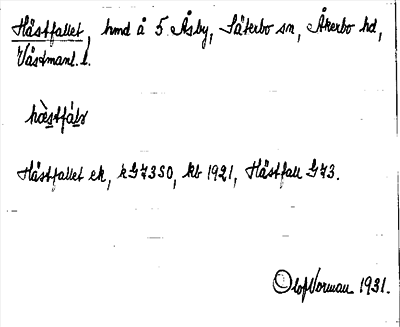 Hästfallet, hmd å 5 Åsby, Säterbo sn, Åkerbo hd,
Västmanl. l.
hæ̀stfáḷǝ
Hästfallet ek, kG73SO, kb 1921, Hästfall G73.
Olof Norman 1931.